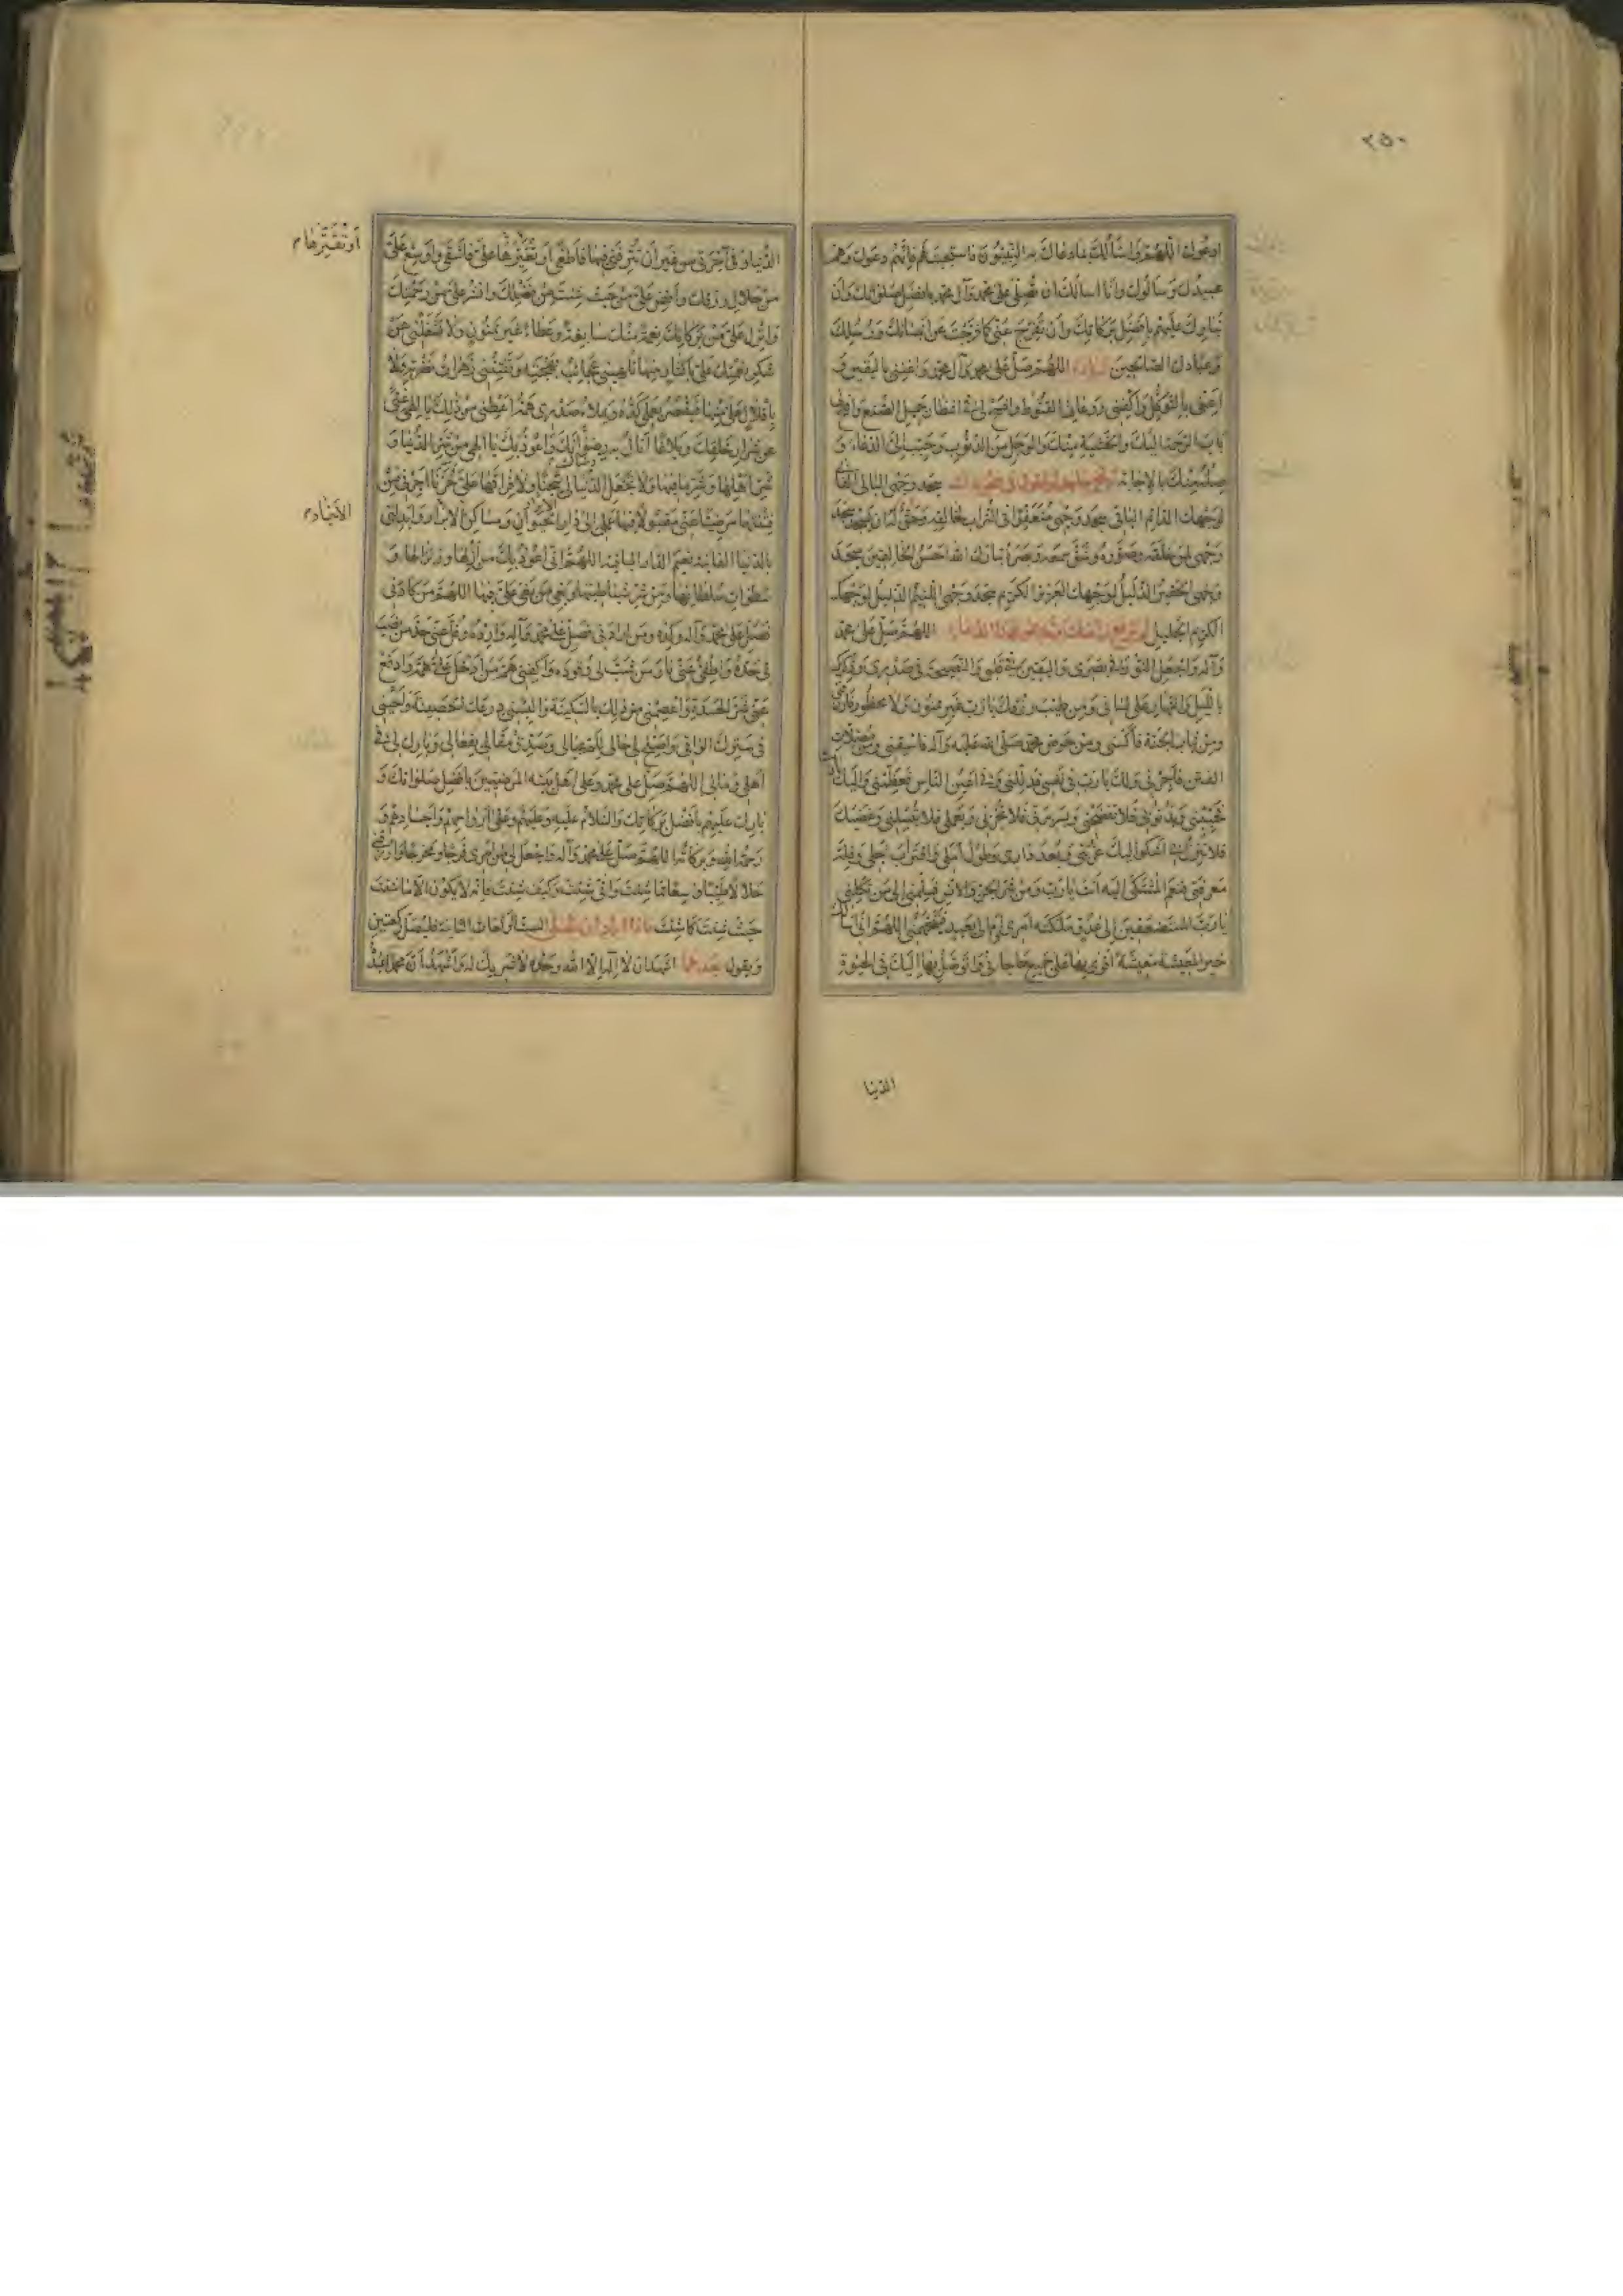 ٢٥٠
ادعوك اللهم واسألك بما دعاك به النبيون فاستجبت لهم فإنهم دعوك وهم
عبيدك وسألوك وأنا اسألك ان تصلي على محمد وآل محمد بافضل صلواتك وان
تبارك عليهم بافضل بركاتك وأن تفرج عني كما فرجت عن انبيائك ورسلك
وعبادك الصالحين اللهم صل على محمد وآل محمد واغنني باليقين و
اعني بالتوكل واكفني روعات القنوط وافسح لي في انتظار جميل الصنع وافتح لي
باب الرحمة اليك والخشية منك والوجل من الذنوب وحبب الي الدعاء و
صله منك بالاجابة سجد وجهي البالي الفاني
لوجهك الدائم الباقي سجد وجهي متعفرا في التراب لخالقه وحق له ان يسجد سجد
وجهي لمن خلقه وصوره وشق سمعه وبصره تبارك الله احسن الخالقين سجد
وجهي الحقير الذليل لوجهك العزيز الكريم سجد وجهي اللئيم الذليل لوجهك
الكريم الجليل ثم ترفع رأسك وتدعو بهذا الدعاء اللهم صل على محمد
وآله واجعل النور في بصري واليقين في قلبي والنصيحة في صدري وذكرك
بالليل والنهار على لساني ومن طيب رزقك يا رب غير ممنون ولا محظور فارزقني
ومن ثياب الجنة فاكسني ومن حوض محمد صلى الله عليه وآله فاسقني ومن مضلات
الفتن فاجرني ولك يا رب في نفسي فذللني وفي اعين الناس فعظمني واليك يا رب
فحببني وبذنوبي فلا تفضحني وبسريرتي فلا تخزني وبعملي فلا تبسلني وغضبك
فلا تنزل بي اشكوا اليك غربتي وبعد داري وطول املي واقتراب اجلي وقلة
معرفتي فنعم المشتكى اليه انت يا رب ومن شر الجن والانس فسلمني الى من تكلني
يا رب المستضعفين الى عدو ملكته امري ام الى بعيد فيتجهمني اللهم اني اسألك
خير المعيشة معيشة اقوى بها على جميع حاجاتي واتوصل بها اليك في الحيوة
الدنيا
الدنيا وفي آخرتي من غير أن تترفني فيها فاطغى او تقترها علي فاشقى واوسع علي
او تقترها م
من حلال رزقك وأفض علي من حيث شئت من فضلك وانشر علي من رحمتك
وانزل علي من بركاتك نعمة منك سابغة وعطاء غير ممنون ولا تشغلني عن
شكر نعمتك علي باكثار منها تلهيني عجائب بهجته وتفتنني زهرات نضرته ولا
باقلال علي منها فيقصر بعملي كده ويملأ صدري همه اعطني من ذلك يا إلهي غنى
عن شرار خلقك وبلاغا أنال به رضوانك واعوذ بك يا الهي من شر الدنيا و
شر اهلها وشر ما فيها ولا تجعل الدنيا لي سجنا ولا فراقها علي حزنا اجرني من
فتنتها مرضيا عني مقبولا فيها عملي الى دار الحيوان ومساكن الاخيار وابدلني
الاخيار م
بالدنيا الفانية نعيم الدار الباقية اللهم اني اعوذ بك من ازلها وزلزالها و
سطوات سلطانها ومن شر شياطينها وبغي من بغى علي فيها اللهم من كادني
فصل على محمد وآله وكده ومن ارادني فصل على محمد وآله وارده وفل عني حد من نصب
لي حده واطف عني نار من شب لي وقوده واكفني هم من أدخل علي همه وادفع
عني شر الحسدة واعصمني من ذلك بالسكينة والبسني درعك الحصينة واحيني
في سترك الواقي واصلح لي حالي وصدق مقالي بفعالي وبارك لي في
اهلي ومالي اللهم صل على محمد وعلى اهل بيته المرضيين بأفضل صلواتك و
بارك عليهم بأفضل بركاتك والسلام عليه وعليهم وعلى ارواحهم واجسادهم و
رحمة الله وبركاته اللهم صل على محمد وآله واجعل لي من امري فرجا ومخرجا وارزقني
حلالا طيبا واسعا مما شئت وانى شئت وكيف شئت فانه لا يكون الا ما شئت
حيث شئت كما شئت فاذا اراد ان يصلي الست الركعات الثانية فليصل ركعتين
ويقول بعدهما اشهد ان لا إله الا الله وحده لا شريك له وأشهد أن محمدا عبده